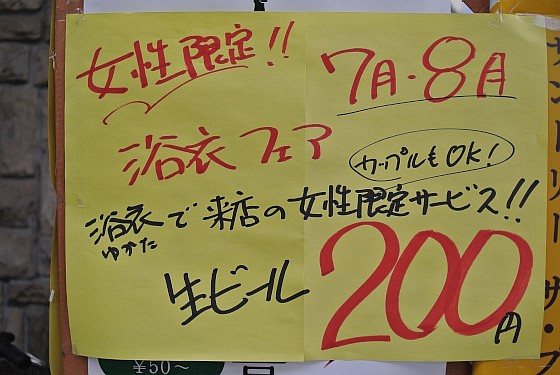 女性限定!!
7月・8月
浴衣フェア
カップルもOK!
浴衣で来店の女性限定サービス!!
ゆかた
生ビール 200円
¥50～
サントリー ザ・プ